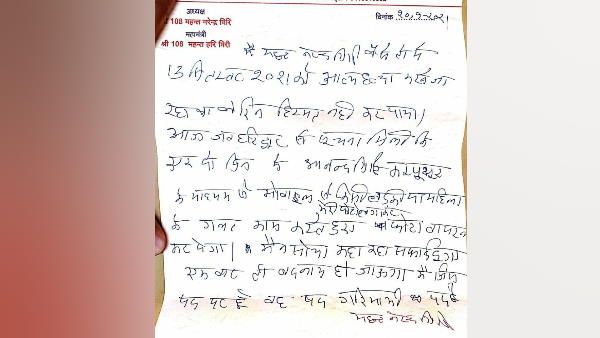 अध्यक्ष
108 महन्त नरेन्द्र गिरि
महामंत्री
श्री 108 महन्त हरि गिरी
दिनांक २०.9-२०२१
मै महन्त नरेन्द्र गिरि वैसे तो मै
13 सितम्बर २०२१ को आत्महत्या करने जा
रहा था लेकिन हिम्मत नही कर पाया।
आज जब हरिद्वार से सूचना मिली कि
एक दो दिन के आनन्द गिरि कम्प्यूटर
के माध्यम से मोबाइल से किसी लडकी या महिला
मेरी फोटो लगाकर
के गलत काम करते हुए फोटो वायरल
कर देगा। मैने सोचा कहा कहा सफाई दूगा
एक बार तो बदनाम हो जाऊगा मै जिस
पद पर हूँ वह पद गरिमामयी पद है
महन्त नरेन्द्र गिरि